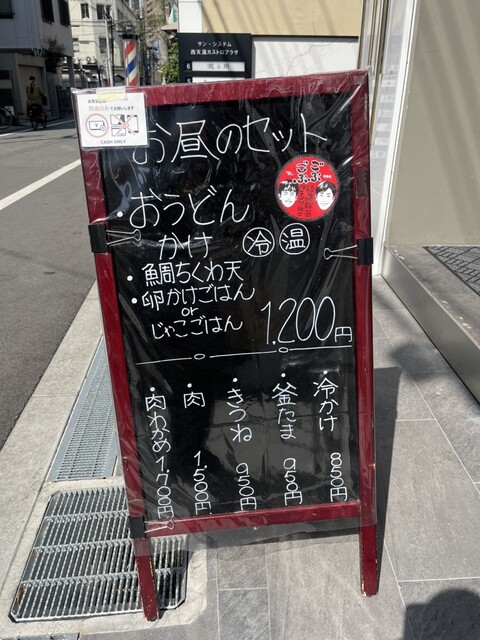 サン・システム
西天満カストロプラザ
現金のみでお願いします
CASH ONLY
お昼のセット
ごぶごぶ
・おうどん
かけ 冷 温
・鯛ちくわ天
・卵かけごはん
or
じゃこごはん 1,200円
・冷かけ 850円
・釜たま 950円
・きつね 950円
・肉 1,500円
・肉わかめ 1,700円